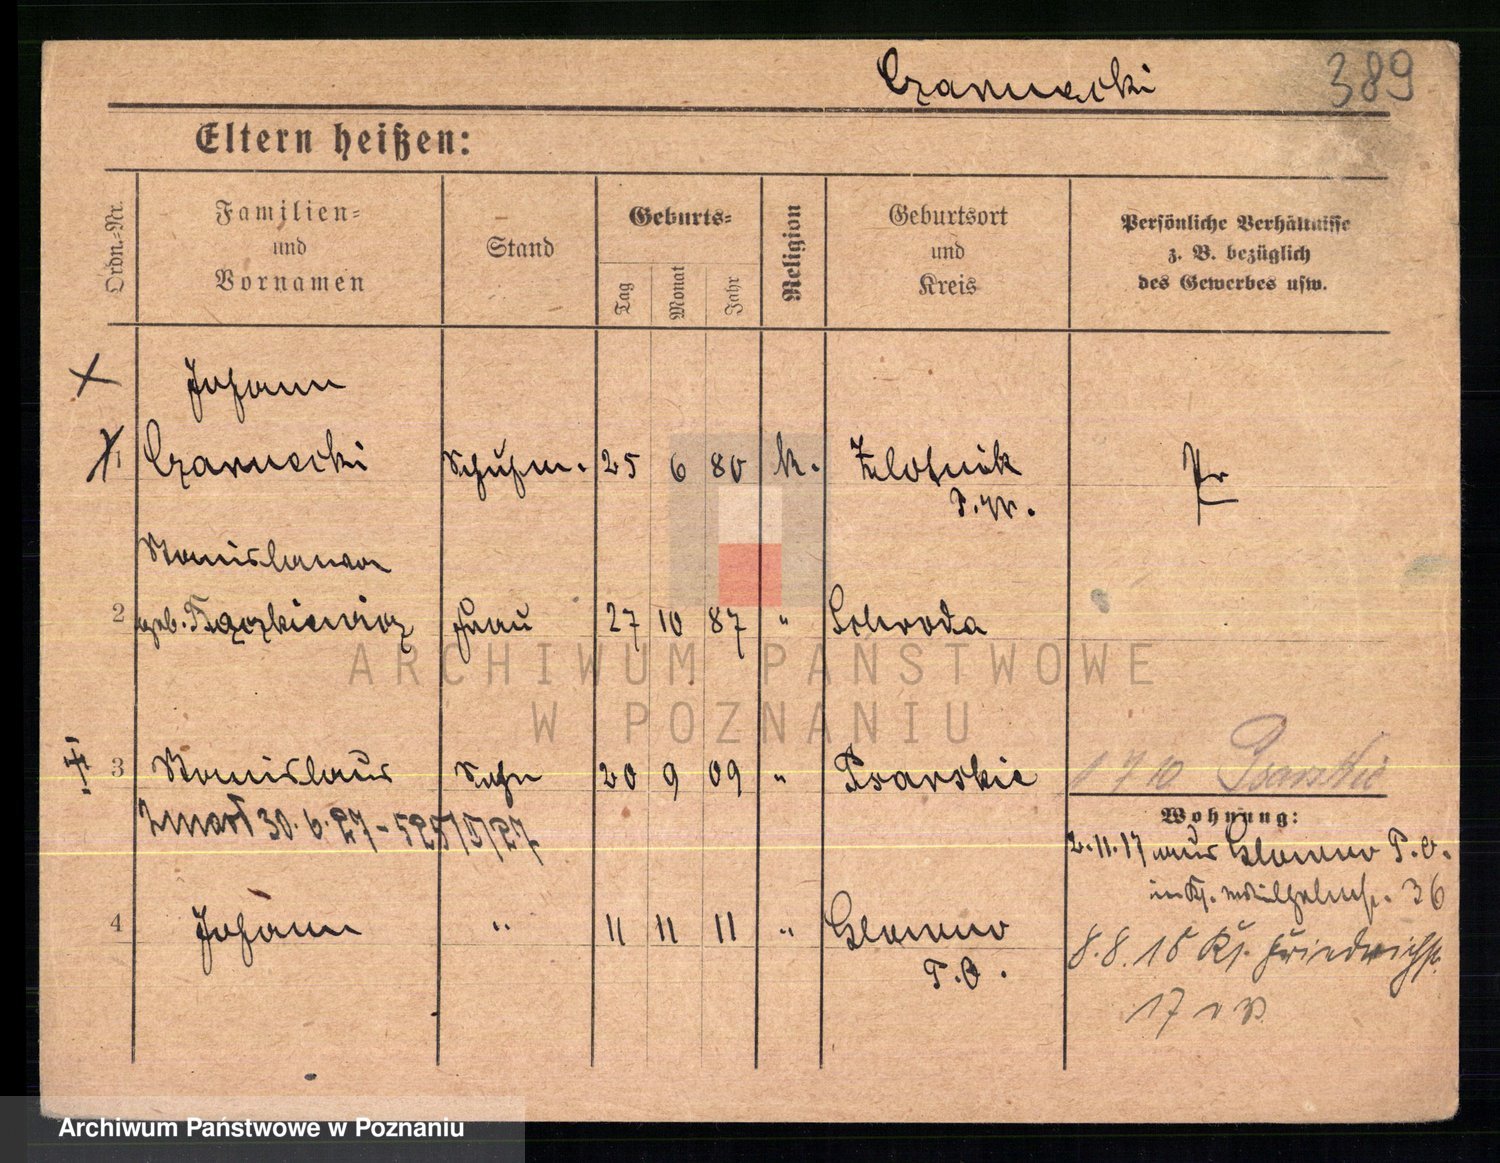 Czarnecki
389
Eltern heißen:
Ordn.-Nr.
Familien-
und
Vornamen
Stand
Geburts-
Tag
Monat
Jahr
Religion
Geburtsort
und
Kreis
Persönliche Verhältnisse
z. B. bezüglich
des Gewerbes usw.
Johann
1 Czarnecki Schuhm. 25 6 80 k. Zlotnik Pr
P. W.
Stanislawa
2 geb. Frau 27 10 87 " Schroda
ARCHIWUM PAŃSTWOWE
W POZNANIU
3 Stanislaus Sohn 20 9 09 " Psarskie
1710 Psarskie
Zmarł 30. 6. 27 - 525/V/27
Wohnung:
2.11.17 aus Glowno P. O.
36
4 Johann " 11 11 11 " Glowno
P. O.
8.8.18 Friedrichst.
17
Archiwum Państwowe w Poznaniu